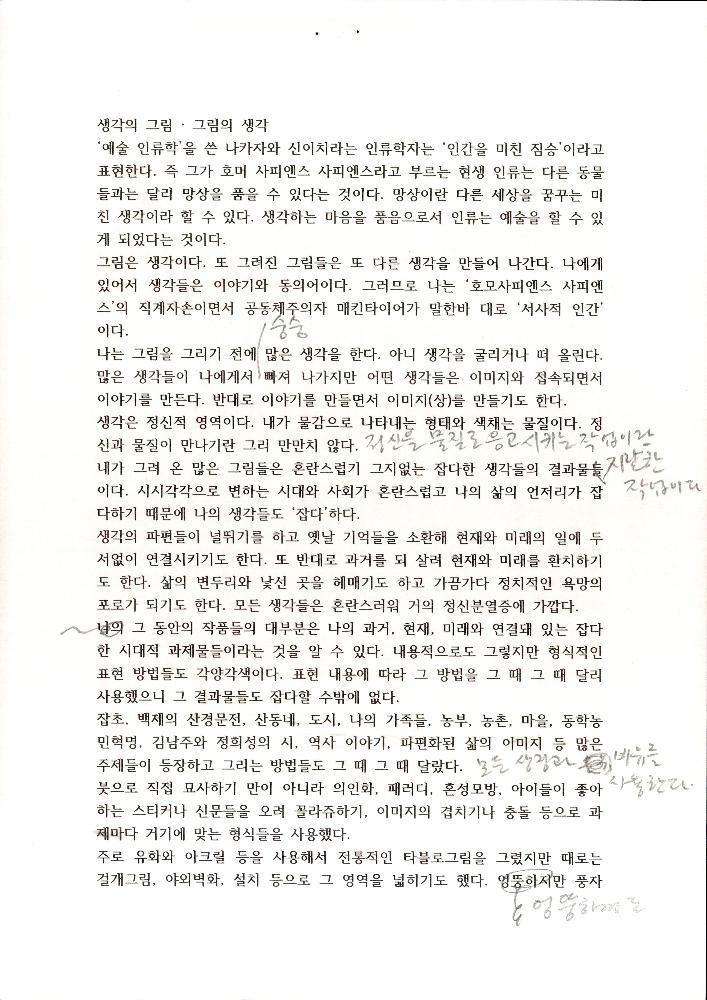 생각의 그림 · 그림의 생각
'예술 인류학'을 쓴 나카자와 신이치라는 인류학자는 '인간을 미친 짐승'이라고
표현한다. 즉 그가 호머 사피엔스 사피엔스라고 부르는 현생 인류는 다른 동물
들과는 달리 망상을 품을 수 있다는 것이다. 망상이란 다른 세상을 꿈꾸는 미
친 생각이라 할 수 있다. 생각하는 마음을 품음으로서 인류는 예술을 할 수 있
게 되었다는 것이다.
그림은 생각이다. 또 그려진 그림들은 또 다른 생각을 만들어 나간다. 나에게
있어서 생각들은 이야기와 동의어이다. 그러므로 나는 '호모사피엔스 사피엔
스'의 직계자손이면서 공동체주의자 매킨타이어가 말한바 대로 '서사적 인간'
이다.
숭숭
나는 그림을 그리기 전에 많은 생각을 한다. 아니 생각을 굴리거나 떠 올린다.
많은 생각들이 나에게서 빠져 나가지만 어떤 생각들은 이미지와 접속되면서
이야기를 만든다. 반대로 이야기를 만들면서 이미지(상)를 만들기도 한다.
생각은 정신적 영역이다. 내가 물감으로 나타내는 형태와 색채는 물질이다. 정
신과 물질이 만나기란 그리 만만치 않다. 정신을 물질로 응고시키는 작업이란
지난한
작업이다
내가 그려 온 많은 그림들은 혼란스럽기 그지없는 잡다한 생각들의 결과물들
이다. 시시각각으로 변하는 시대와 사회가 혼란스럽고 나의 삶의 언저리가 잡
다하기 때문에 나의 생각들도 '잡다'하다.
생각의 파편들이 널뛰기를 하고 옛날 기억들을 소환해 현재와 미래의 일에 두
서없이 연결시키기도 한다. 또 반대로 과거를 되 살려 현재와 미래를 환치하기
도 한다. 삶의 변두리와 낯선 곳을 헤매기도 하고 가끔가다 정치적인 욕망의
포로가 되기도 한다. 모든 생각들은 혼란스러워 거의 정신분열증에 가깝다.
나의 그 동안의 작품들의 대부분은 나의 과거, 현재, 미래와 연결돼 있는 잡다
한 시대적 과제물들이라는 것을 알 수 있다. 내용적으로도 그렇지만 형식적인
표현 방법들도 각양각색이다. 표현 내용에 따라 그 방법을 그 때 그 때 달리
사용했으니 그 결과물들도 잡다할 수밖에 없다.
잡초, 백제의 산경문전, 산동네, 도시, 나의 가족들, 농부, 농촌, 마을, 동학농
민혁명, 김남주와 정희성의 시, 역사 이야기, 파편화된 삶의 이미지 등 많은
주제들이 등장하고 그리는 방법들도 그 때 그 때 달랐다. 모든 생각과 비유를
사용한다.
붓으로 직접 묘사하기 만이 아니라 의인화, 패러디, 혼성모방, 아이들이 좋아
하는 스티커나 신문들을 오려 꼴라쥬하기, 이미지의 겹치기나 충돌 등으로 과
제마다 거기에 맞는 형식들을 사용했다.
주로 유화와 아크릴 등을 사용해서 전통적인 타블로그림을 그렸지만 때로는
걸개그림, 야외벽화, 설치 등으로 그 영역을 넓히기도 했다. 엉뚱하지만 풍자